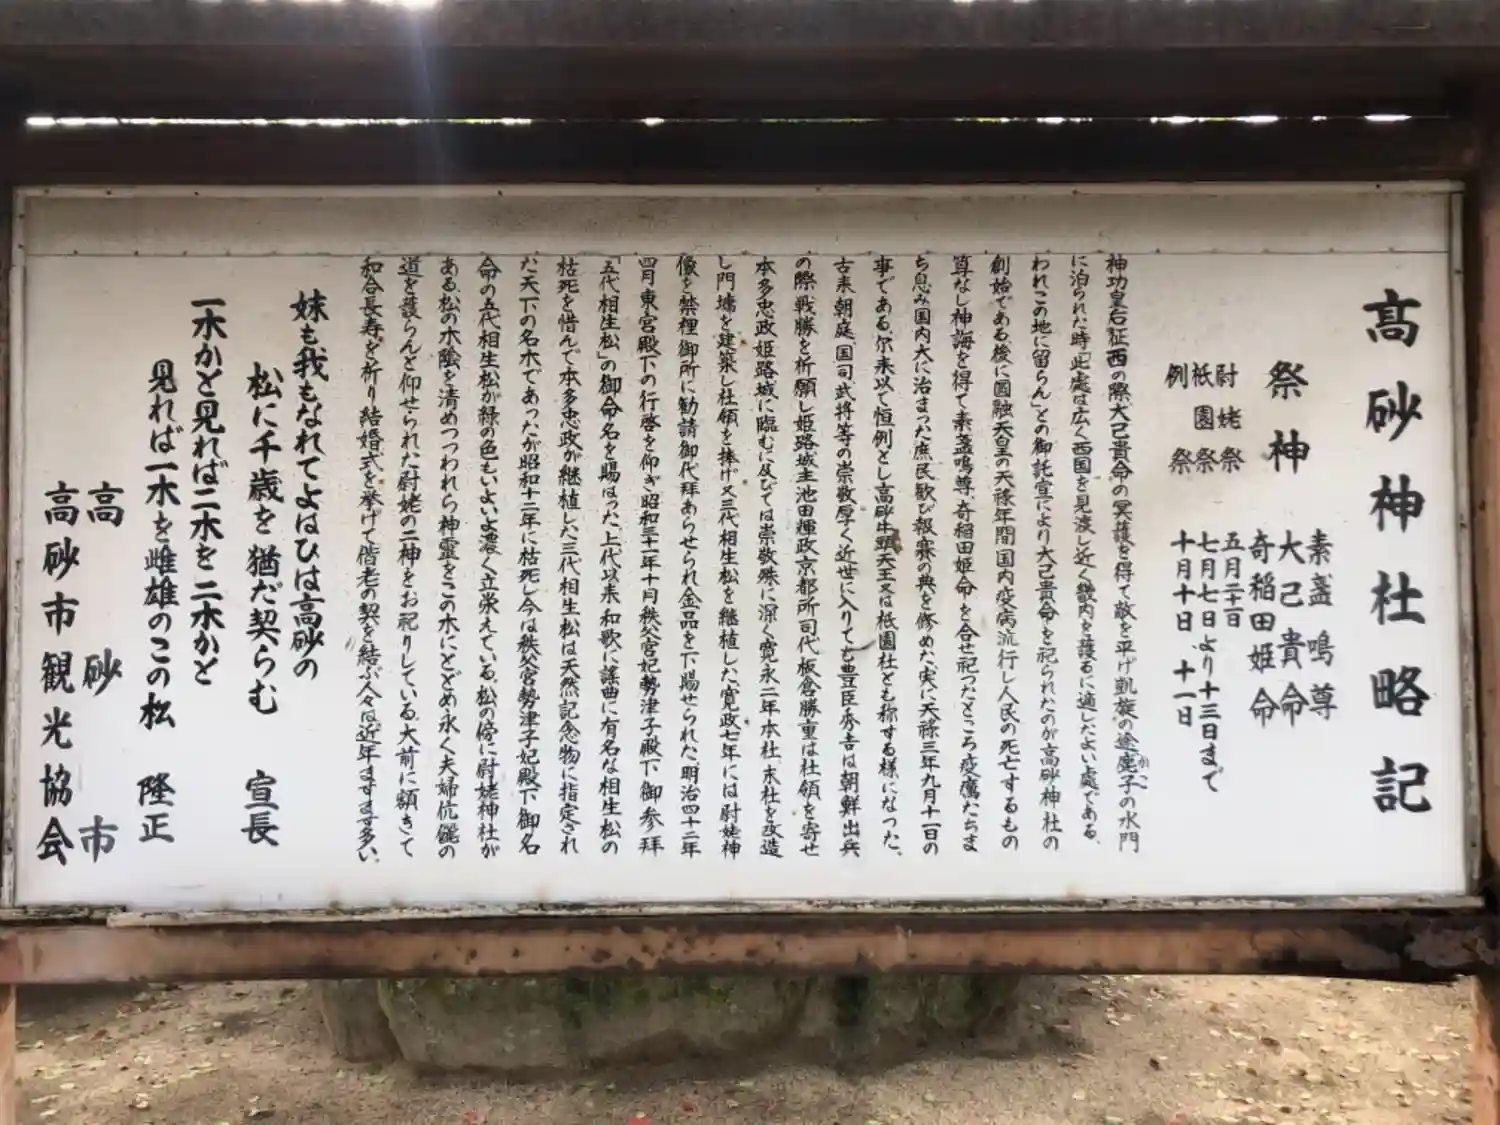 高砂神社略記
祭神
素盞鳴尊
大己貴命
奇稲田姫命
尉姥祭 五月二十二日
祇園祭 七月七日より十三日まで
例祭 十月十日、十一日
神功皇后征西の際大己貴命の冥護を得て敵を平げ凱旋の途鹿子の水門
に泊られた時「此處は広く西国を見渡し近く畿内を護るに適したよい處である、
われこの地に留らん」との御託宣により大己貴命を祀られたのが高砂神社の
創始である、後に圓融天皇の天祿年間国内疫病流行し人民の死亡するもの
算なし神誨を得て素盞鳴尊、奇稲田姫命を合せ祀ったところ疫癘たちま
ち息み国内大に治まった庶民歓び報賽の典を修めた、実に天祿三年九月十一日の
事である、尓来以て恒例とし高砂牛頭天王又は祇園社とも称する様になった、
古来朝庭、国司武将等の崇敬厚く近世に入りても豊臣秀吉は朝鮮出兵
の際戦勝を祈願し姫路城主池田輝政京都所司代板倉勝重は社領を寄せ
本多忠政姫路城に臨むに及びては崇敬殊に深く寛永二年本社、末社を改造
し門墻を建築し社領を捧げ又三代相生松を継植した、寛政七年には尉姥神
像を禁裡御所に勧請御代拝あらせられ金品を下賜せられた、明治四十二年
四月東宮殿下の行啓を仰ぎ昭和三十一年十月秩父宮妃勢津子殿下御参拝
「五代相生松」の御命名を賜はった、上代以来和歌に謡曲に有名な相生松の
枯死を惜んで本多忠政が継植した三代相生松は天然記念物に指定され
た天下の名木であったが昭和十二年に枯死し今は秩父宮勢津子妃殿下御名
命の五代相生松が緑の色もいよいよ濃く立栄えている、松の傍に尉姥神社が
ある、松の木陰を清めつつわれら神霊をこの木にとどめ永く夫婦伉儷の
道を護らんと仰せられた尉姥の二神をお祀りしている、大前に額きて
和合長寿を祈り結婚式を挙げて偕老の契を結ぶ人々は近年ますます多い、
妹も我もなれてよはひは高砂の
松に千歳を猶だ契らむ 宣長
一木かと見れば二木を二木かと
見れば一木を雌雄のこの松 隆正
高砂市
高砂市観光協会